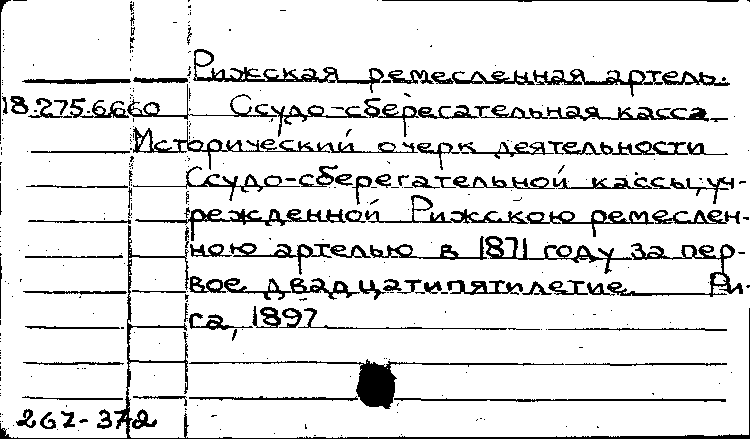 Рижская ремесленная артель.
18.275.6.660 Ссудо-сберегательная касса.
Исторический очерк деятельности
Ссудо-сберегательной кассы, уч-
режденной Рижскою ремеслен-
ною артелью в 1871 году за пер-
вое двадцатипятилетие. Ри-
га, 1897.
267-372